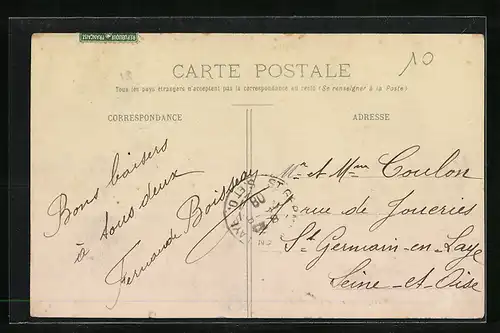 REPUBLIQUE FRANÇAISE
10
CARTE POSTALE
Tous les pays étrangers n'acceptent pas la correspondance au recto (Se renseigner à la Poste)
CORRESPONDANCE
ADRESSE
Bons baisers
à tous deux
Fernande Boisseau
Mr et Mme Coulon
rue de Joueries
St Germain-en-Laye
Seine-et-Oise